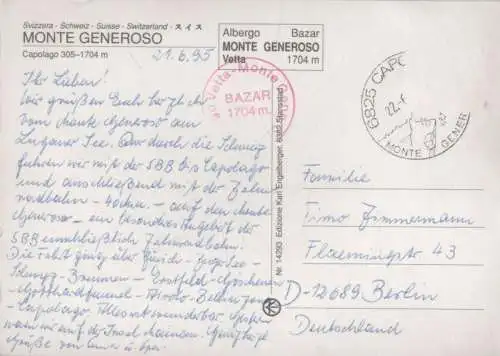 Svizzera - Schweiz - Suisse - Switzerland - スイス
MONTE GENEROSO
Capolago 305–1704 m
21.6.95
Albergo Bazar
MONTE GENEROSO
Vetta 1704 m
Vetta-Monte
BAZAR
1704 m.
6825 CAPO
22.-6
MONTE GENER
Ihr Lieben!
Wir grüßen Euch herzlich
vom Monte Generoso am
Luganer See. Quer durch die Schweiz
fuhren wir mit der SBB bis Capolago
und anschließend mit der Zahn-
radbahn - - auf den Monte
Generoso - ein besonderes Angebot der
SBB einschließlich Zahnradbahn!
Die Fahrt ging über Zürich - Zuger See -
Schwyz - Brunnen - Erstfeld - Göschenen
- Gotthardtunnel - Airolo - Bellinzona
- Capolago. Alles wunderbar. Gestern
waren wir auf der Insel Mainau.
Grüße von
Nr. 14293 Edizione Karl Engelberger, 6362 Stansstad
Familie
Timo Zimmermann
Flämingstr 43
D-12689 Berlin
Deutschland